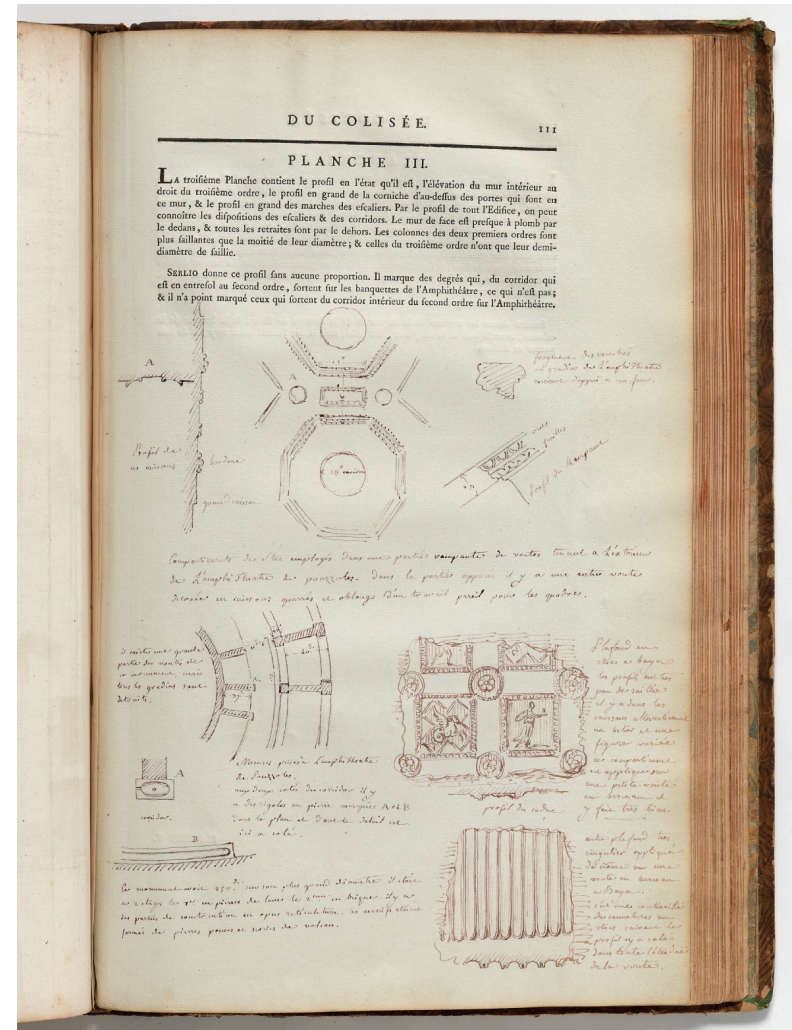 DU COLISÉE.
III
PLANCHE III.
LA troisième Planche contient le profil en l'état qu'il est, l'élévation du mur intérieur au
droit du troisième ordre, le profil en grand de la corniche d'au-dessus des portes qui sont en
ce mur, & le profil en grand des marches des escaliers. Par le profil de tout l'Edifice, on peut
connoître les dispositions des escaliers & des corridors. Le mur de face est presque à plomb par
le dedans, & toutes les retraites sont par le dehors. Les colonnes des deux premiers ordres sont
plus saillantes que la moitié de leur diamètre; & celles du troisième ordre n'ont que leur demi-
diamètre de saillie.
SERLIO donne ce profil sans aucune proportion. Il marque des degrés qui, du corridor qui
est en entresol au second ordre, sortent sur les banquettes de l'Amphithéâtre, ce qui n'est pas;
& il n'a point marqué ceux qui sortent du corridor intérieur du second ordre sur l'Amphithéâtre.
A
A
des marches
gradins de l'amphitheatre
Profil de
bordure
grand caisson
Profil du
Compartiments de employés dans une partie rampante de voutes tenant a l'exterieur
de l'amphitheatre de pouzzoles. dans la partie opposée il y a une autre voute
decorée en caissons quarrés et oblongs d'un travail pareil pour les quadres.
il existe une grande
partie des voutes de
ce monument, mais
tous les gradins sont
detruits.
Mesures prises a l'amphitheatre
de Pouzzoles.
aux deux cotés du corridor il y
a des rigoles en pierre marquées A et B
dans le plan et dont le detail est
ici a coté.
A
corridor.
B
Ce monument avoit 250 dans son plus grand diametre il etoit
a 2 etages les en pierres de laves le 2 en brique. il y a
des parties de construction en opus reticulatum. les massifs etoient
formés de pierres ponces et scories de volcan.
Plafond en
stucs a baya
les profils ont tres
peu de saillie
il y a dans les
caissons alternativement
un belier et une
figure variée
ce compartiment
est appliqué sur
une petite voute
en berceau et
y fait tres bien.
profil du cadre
autre plafond tres
singulier appliqué
de même sur une
voute en berceau
a Baya.
c'est une continuité
de cannelures en
stucs suivant le
profil cy a coté
dans toute l'etendue
de la voute.